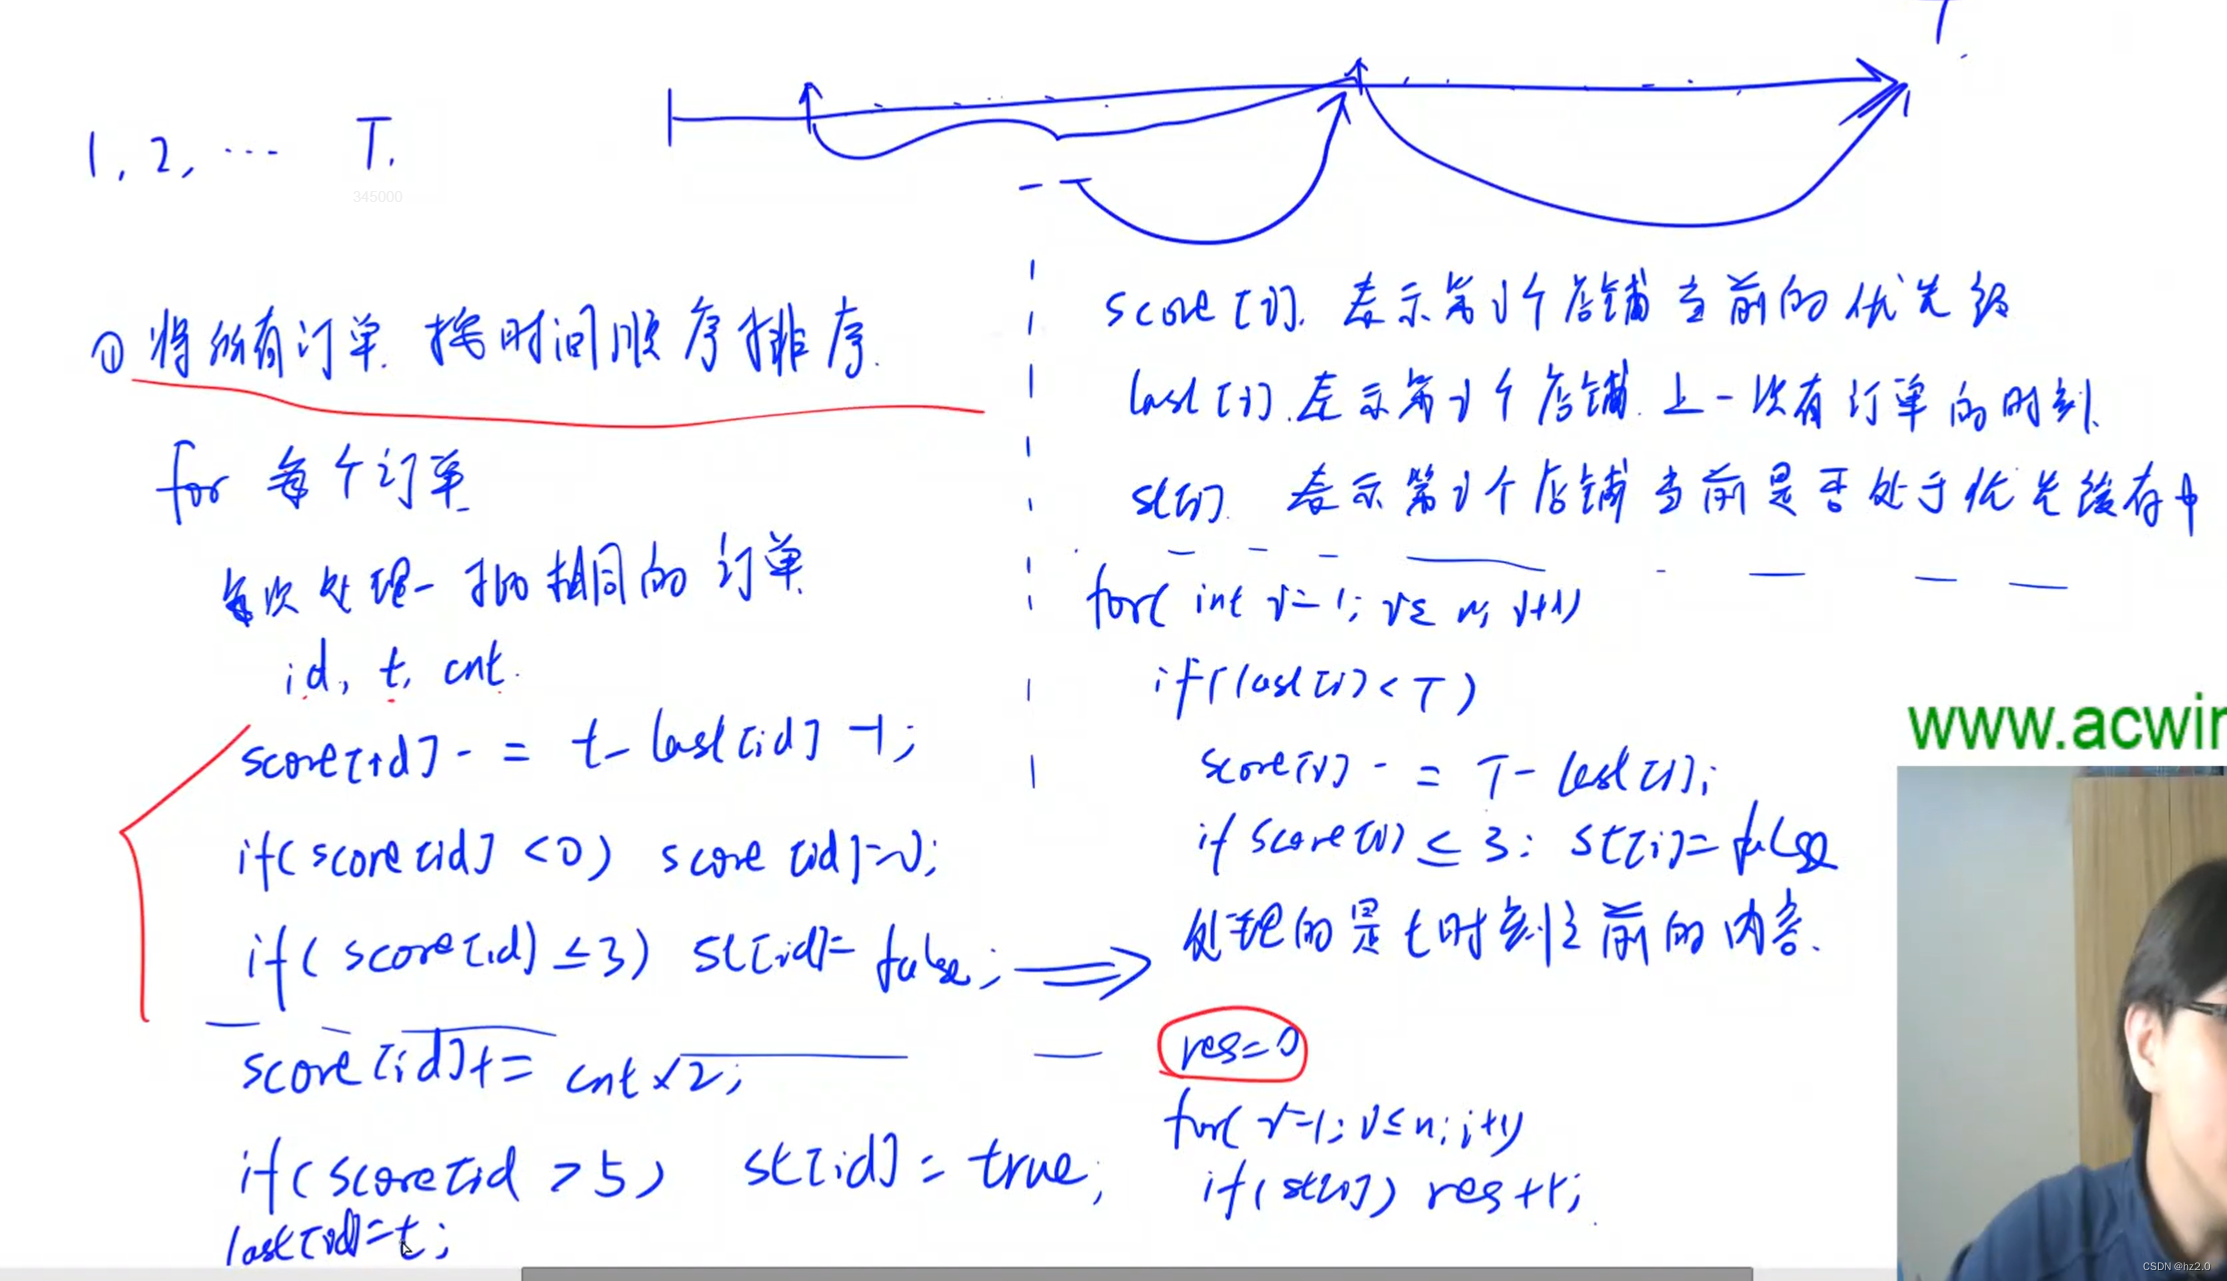 1, 2, ... T.
345000
① 将所有订单. 按时间顺序排序.
for 每个订单
每次处理一批相同的订单
id, t, cnt.
score[id] -= t - last[id] -1;
if(score[id] <0) score[id]=0;
if( score[id] ≤3) st[id]= false; ⇒
score[id]+= cnt×2;
if(score[id > 5) st[id] = true;
last[id]=t;
score[i]. 表示第i个店铺当前的优先级
last[i]. 表示第i个店铺. 上一次有订单的时刻.
st[i]. 表示第i个店铺当前是否处于优先缓存中
for( int i=1; i≤ n; i++)
if(last[i] < T)
score[i] -= T- last[i];
if score[i] ≤ 3: st[i]= false
处理的是t时刻之前的内容.
res=0
for( i=1; i≤n; i++)
if(st[i]) res++;
www.acwi
CSDN @hz2.0